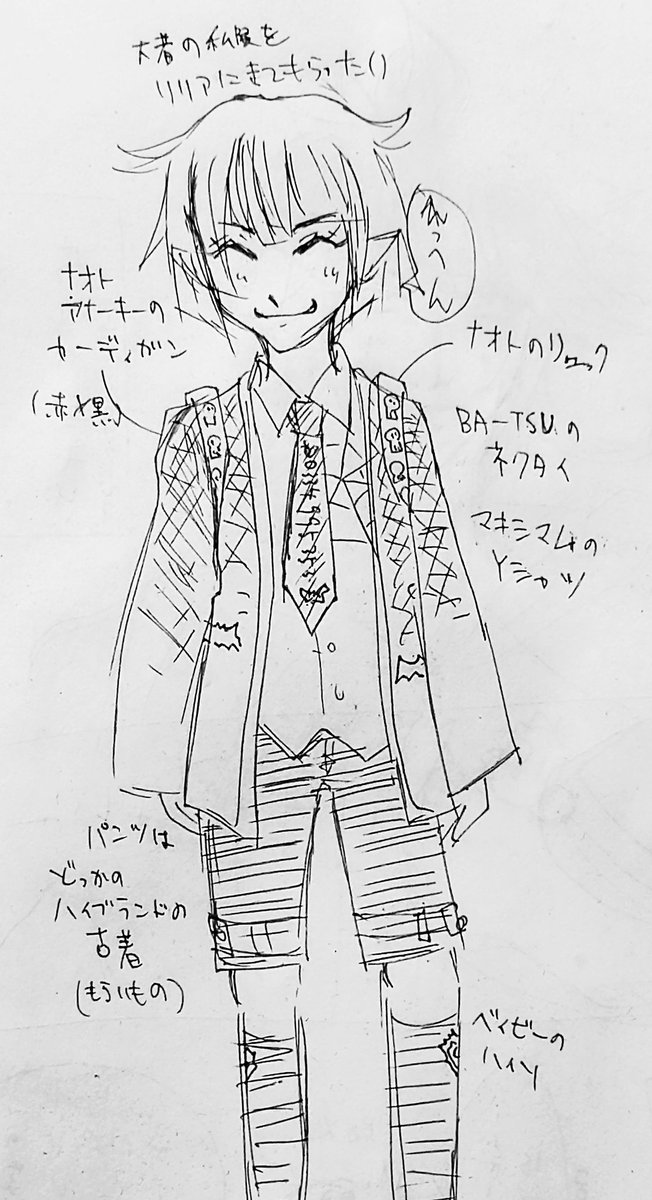 大者の私服を
リリアにきてもらった()
えっへん
ナオト
アナーキーの
カーディガン
(赤×黒)
ナオトのリュック
BA-TSUの
ネクタイ
マキシマムの
Yシャツ
パンツは
どっかの
ハイブランドの
古着
(もらいもの)
ベイビーの
ハイソ